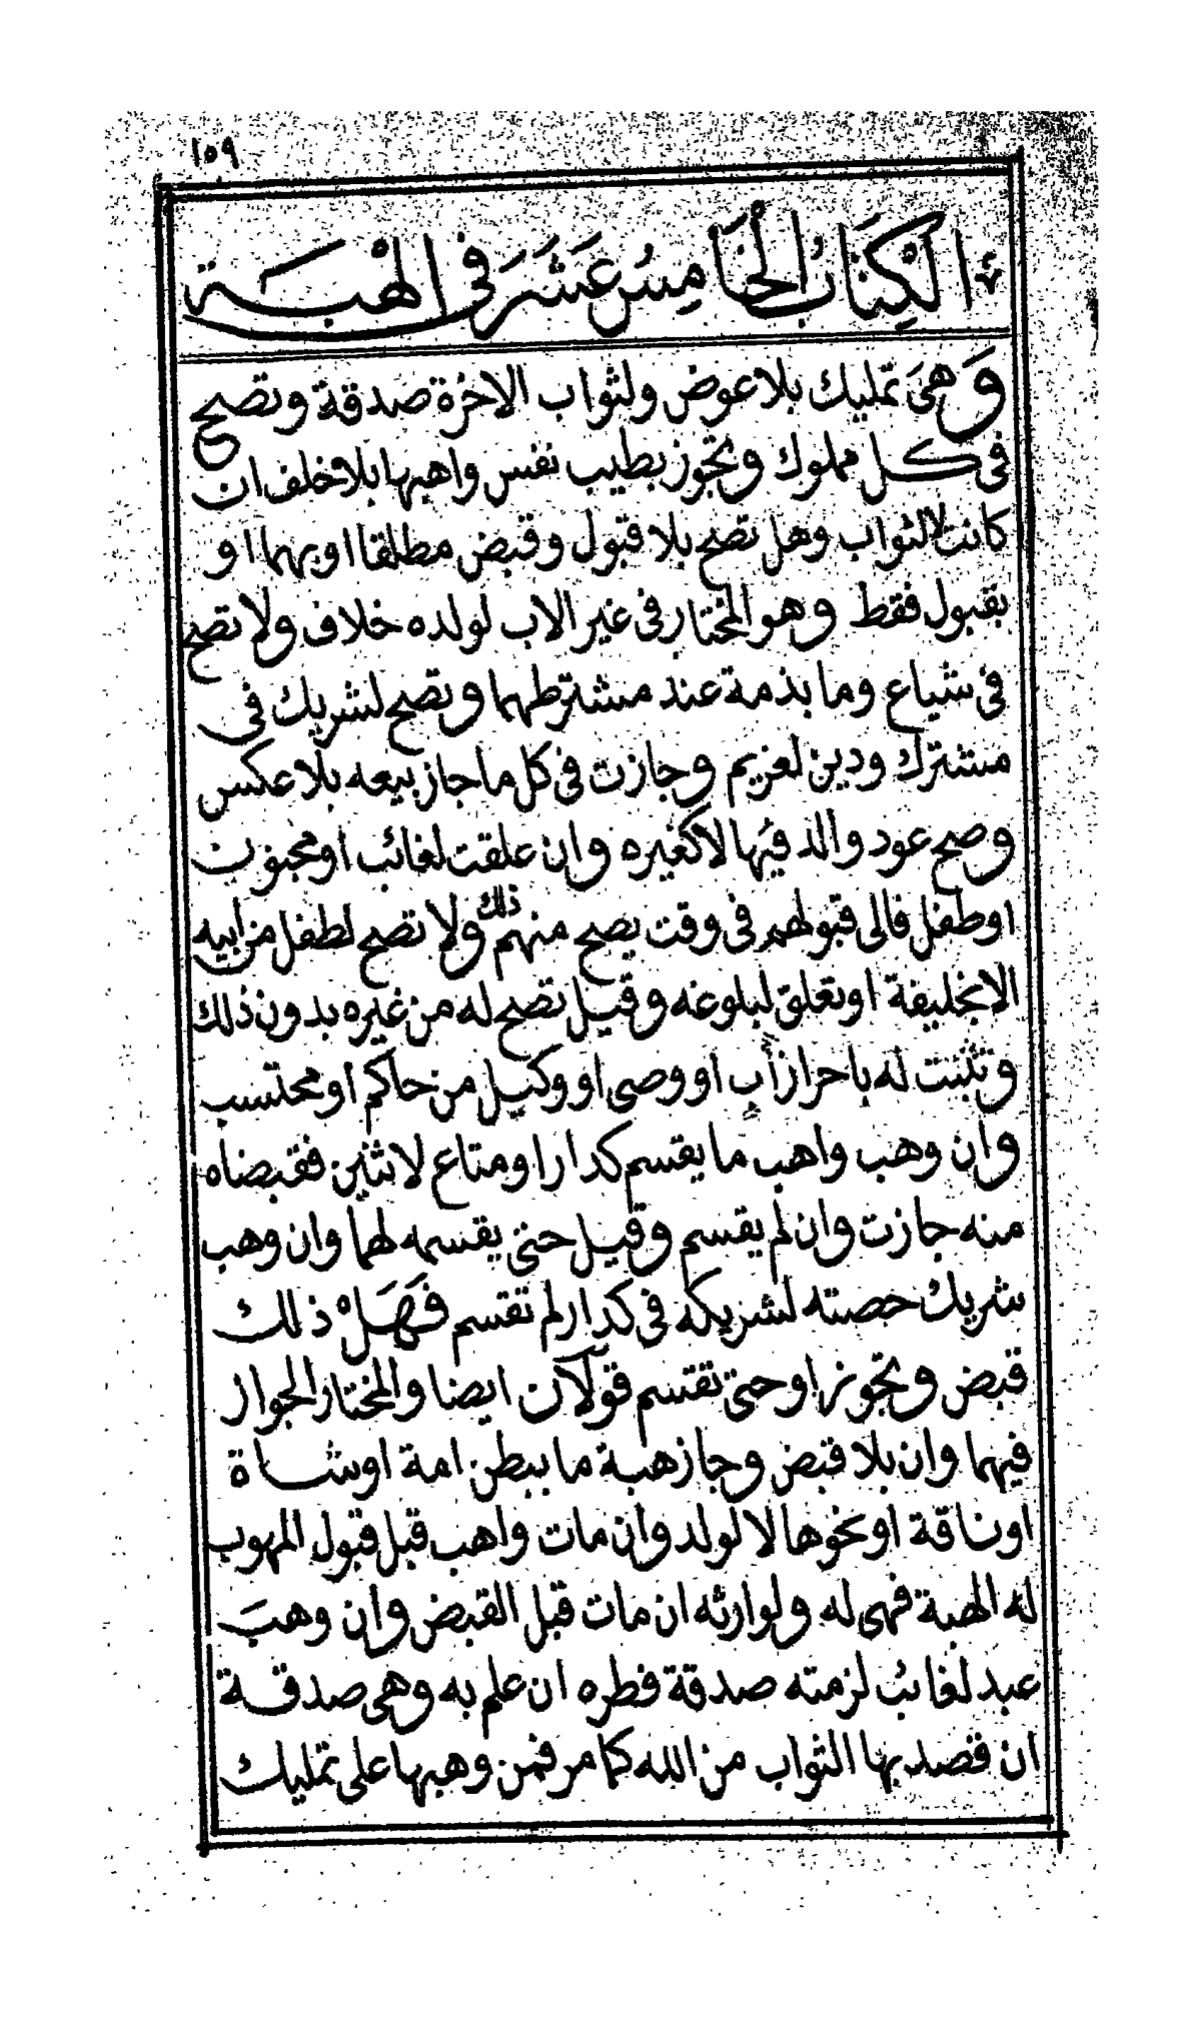 ١٥٩
الكِتَابُ الخَامِسُ عَشَرَ فى الهبَة
وَهىَ تمليك بلا عوض ولثواب الاخرة صدقة وتصح
فى كل مملوك وتجوز بطيب نفس واهبها بلا خلف ان
كانت لا لثواب وهل تصح بلا قبول وقبض مطلقا او بهما او
بقبول فقط وهو المختار فى غير الاب لولده خلاف ولا تصح
فى شياع وما بذمة عند مشترطهما وتصح لشريك فى
مشترك ودين لغريم وجازت فى كل ما جاز بيعه بلا عكس
وصح عود والد فيها لا كغيره وان علقت لغائب او مجنون
او طفل فالى قبولهم فى وقت يصح منهم ذلك ولا تصح لطفل من ابيه
الا بخليفة او تعلق لبلوغه وقيل تصح له من غيره بدون ذلك
وتثبت له باحراز أب او وصى او وكيل من حاكم او محتسب
وان وهب واهب ما يقسم كدار او متاع لاثنين فقبضاه
منه جازت وان لم يقسم وقيل حتى يقسمه لهما وان وهب
شريك حصته لشريكه فى كدار لم تقسم فَهَلْ ذلك
قبض وتجوز او حتى تقتسم قولان ايضا والمختار الجواز
فيهما وان بلا قبض وجاز هبة ما ببطن امة او شاة
او ناقة او نحوها لا لولد وان مات واهب قبل قبول الموهوب
له الهبة فهى له ولوارثه ان مات قبل القبض وان وهبَ
عبد لغائب لزمته صدقة فطره ان علم به وهى صدقة
ان قصد بها الثواب من الله كما مر فمن وهبها على تمليك